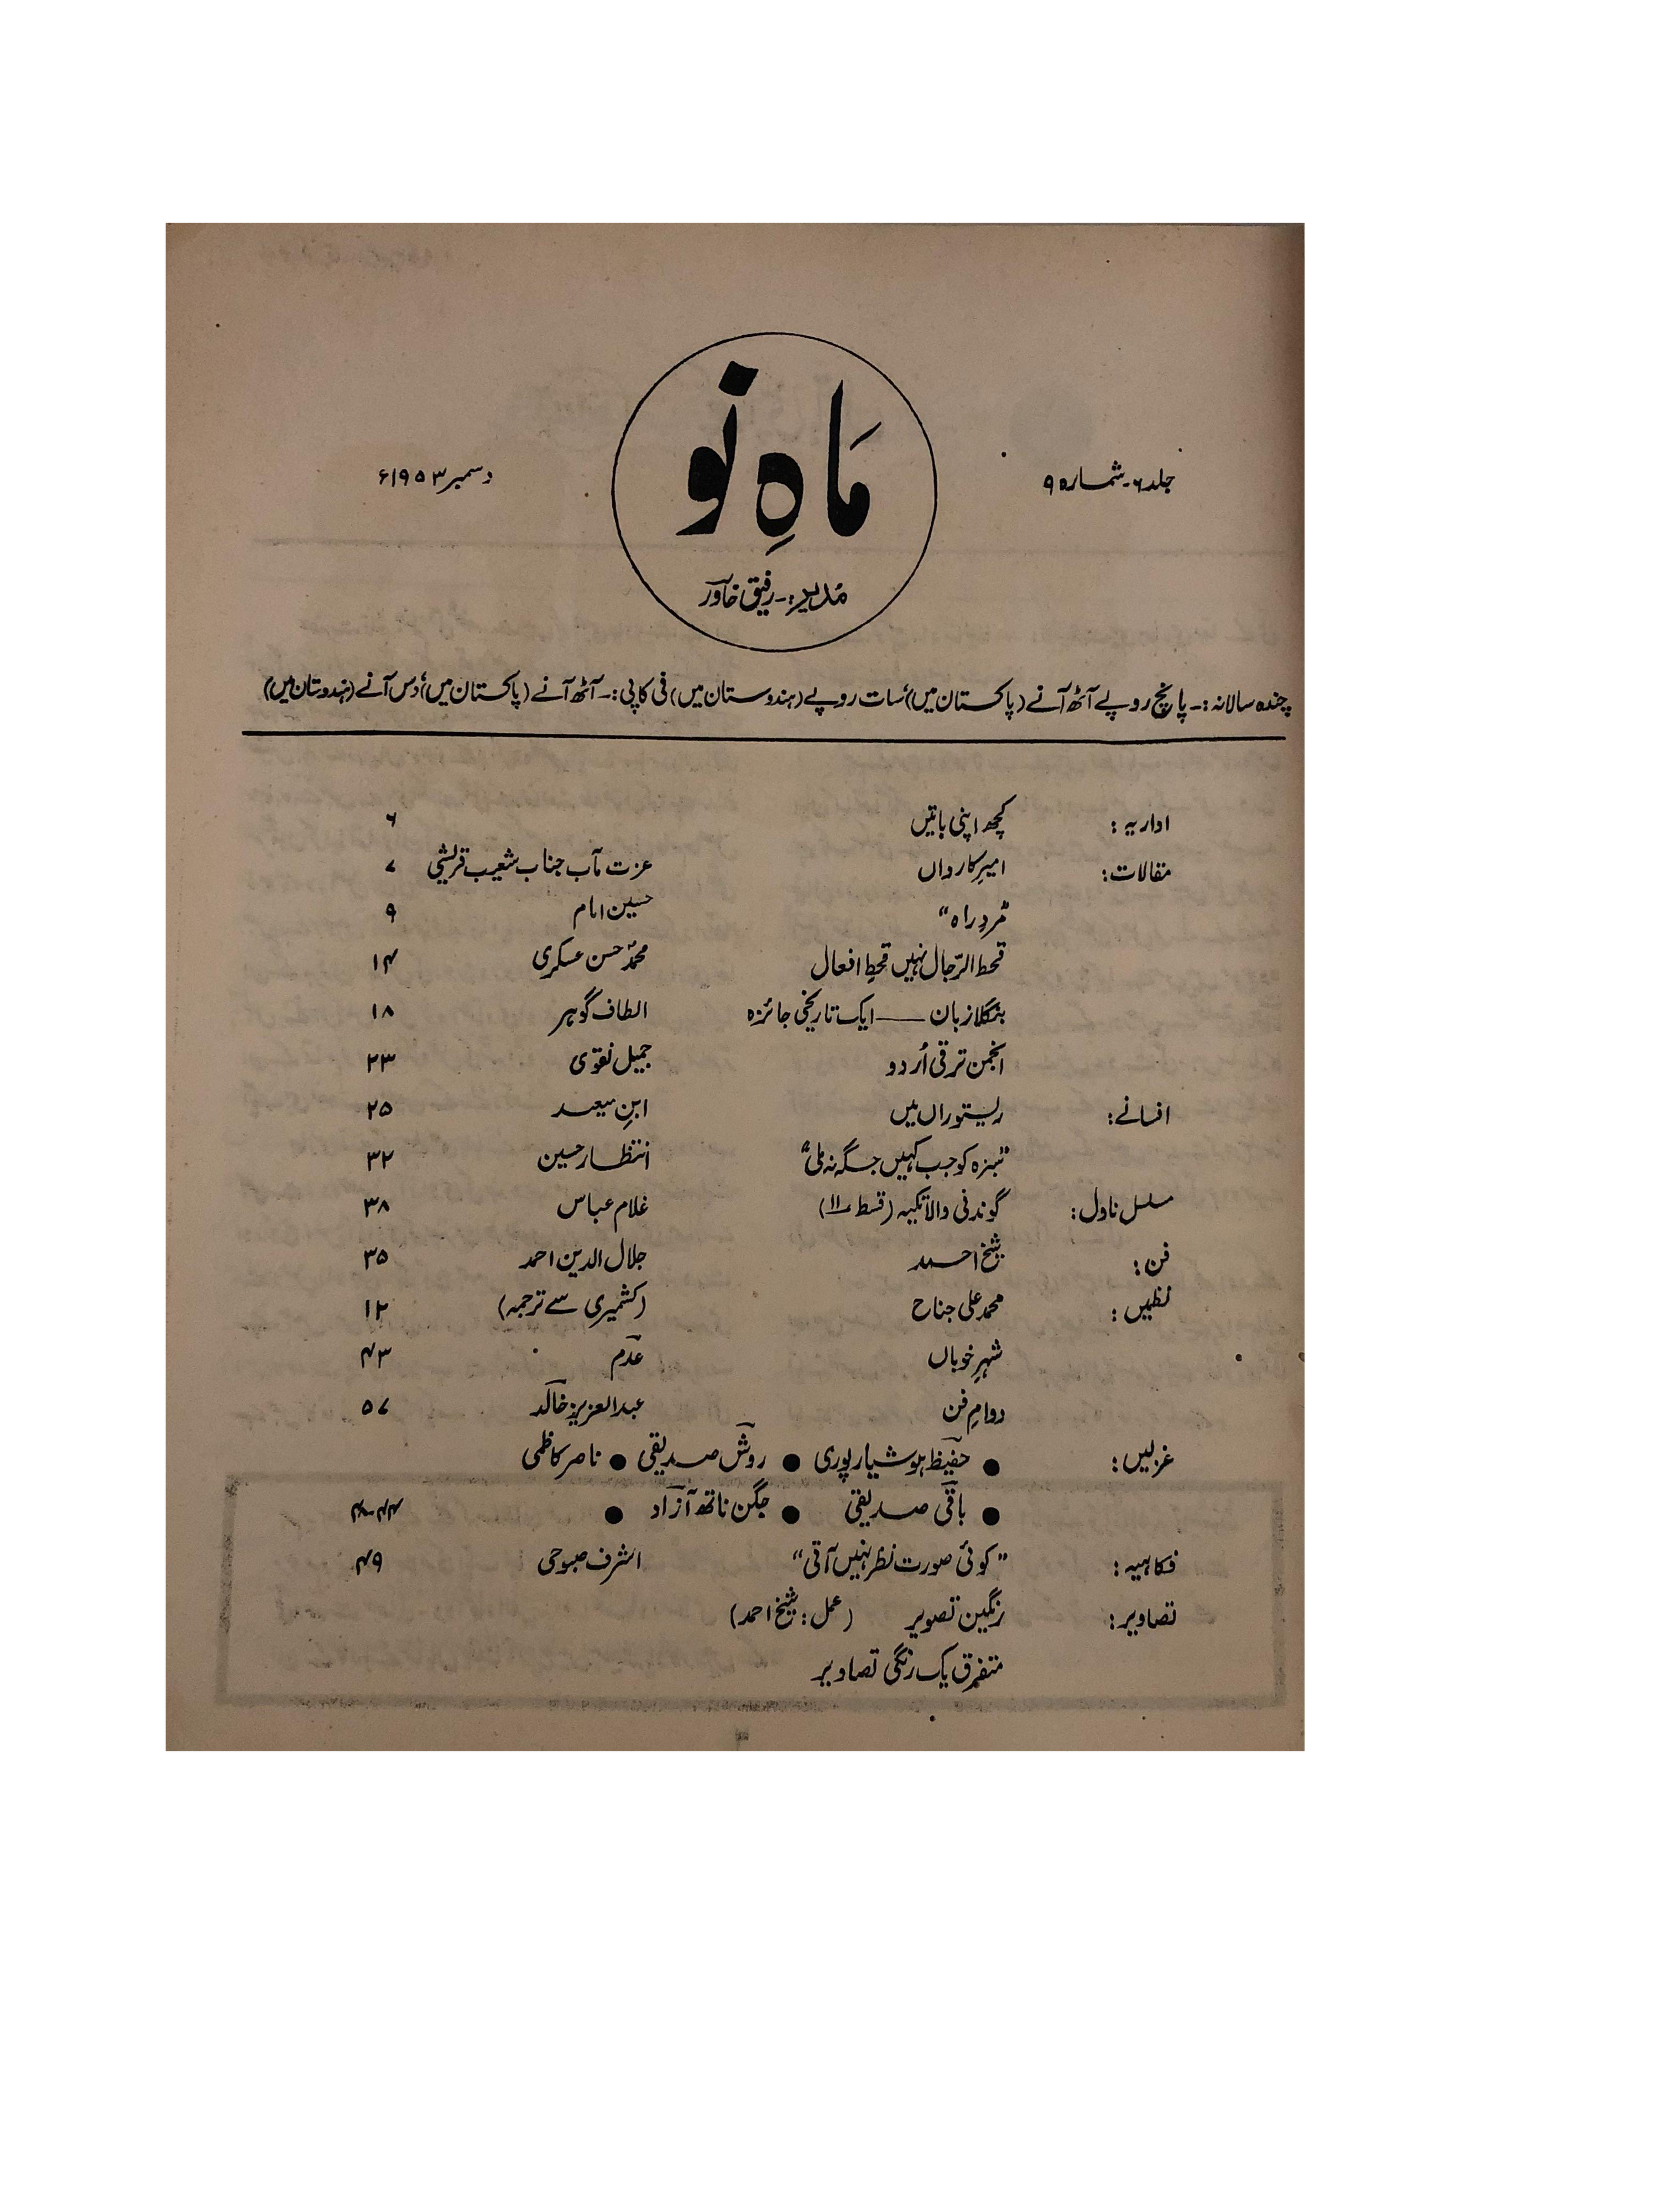 جلد ۶ - شمارہ ۹
مَاہِ نَو
دسمبر ۱۹۵۳ء
مُدیر:- رفیق خاورؔ
چندہ سالانہ:- پانچ روپے آٹھ آنے (پاکستان میں) سات روپے (ہندوستان میں) فی کاپی:- آٹھ آنے (پاکستان میں) دس آنے (ہندوستان میں)
اداریہ: کچھ اپنی باتیں ۶
مقالات: امیرِ کارواں عزت مآب جناب شعیب قریشی ۷
"مردِ راہ" حسین امام ۹
قحط الرّجال نہیں قحطِ افعال محمدؐ حسن عسکری ۱۴
بنگلا زبان —— ایک تاریخی جائزہ الطاف گوہر ۱۸
انجمن ترقی اُردو جمیل نقوی ۲۳
افسانے: ریستوراں میں ابنِ سعید ۲۵
"سبزہ کو جب کہیں جگہ نہ ملی" انتظار حسین ۳۲
مسلسل ناول: گوندنی والا تکیہ (قسط ۱۱) غلام عباس ۳۸
فن: شیخ احمد جلال الدین احمد ۳۵
نظمیں: محمد علی جناح (کشمیری سے ترجمہ) ۱۲
شہرِ خوباں عدمؔ ۴۳
دوامِ فن عبدالعزیز خالدؔ ۵۷
غزلیں: ● حفیظؔ ہوشیارپوری ● روشؔ صدیقی ● ناصر کاظمی
● باقیؔ صدیقی ● جگن ناتھ آزادؔ ● ۴۴-۴۸
فکاہیہ: "کوئی صورت نظر نہیں آتی" اشرف صبوحی ۴۹
تصاویر: رنگین تصویر (عمل: شیخ احمد)
متفرق یک رنگی تصاویر